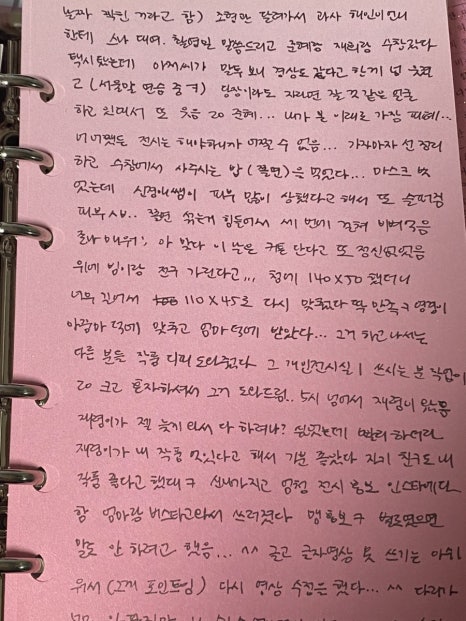 날짜 찍힌 거라고 함) 조형만 달려가서 과사 해인이언니
한테 스나 대여. 촬영일 말씀드리고 준혜랑 재희랑 수참갔다
택시 탔는데 아저씨가 말투 보니 경상도 같다고 한게 넘 웃겼
고 (서울말 연습 중ㅋ) 당장이라도 자러면 잘 것 같은 얼굴
하고 있대서 또 웃음 20 준혜... 내가 본 이래로 가장 피폐...
너 어쨌든 전시는 해야하니까 어쩔 수 없음... 가자마자 선 정리
하고 수참에서 사주시는 밥 (쫄면)을 먹었다... 마스크 벗
었는데 신경애쌤이 피부 많이 상했다고 해서 또 슬퍼짐
피부 시.. 쫄면 섞는게 힘들어서 세 번에 걸쳐 비벼먹음
존나 매워; 아 맞다 이 난은 커튼 단다고 또 정신없었음
위에 빔이랑 전구 가린다고,,, 첨에 140X50 했더니
너무 길어서 110X45로 다시 맞췄다 딱 만족ㅋ 영경이
아랑마 덕에 맞추고 엄마 덕에 받았다... 그거 하고 나서는
다른 분들 작품 디피 도와줬다 그 개인전시실 1 쓰시는 분 작업이
20 크고 혼자하셔서 그거 도와드림.. 5시 넘어서 재령이 왔음
재령이가 젤 늦게 와서 다 하려나? 싶었는데 빨리 하더라
재령이가 내 작품 멋있다고 해서 기분 좋았다 자기 친구도 내
작품 좋다고 했대ㅋ 신나가지고 엄청 전시 홍보 인스타에다
함 엄마랑 버스타고와서 쓰러졌다 맹홍보ㅋ 별로였으면
말도 안 하려고 했음... ^^ 글고 글자영상 못 쓰기는 아쉬
워서 (그게 포인트임) 다시 영상 수정은 했다... ^^ 다리가